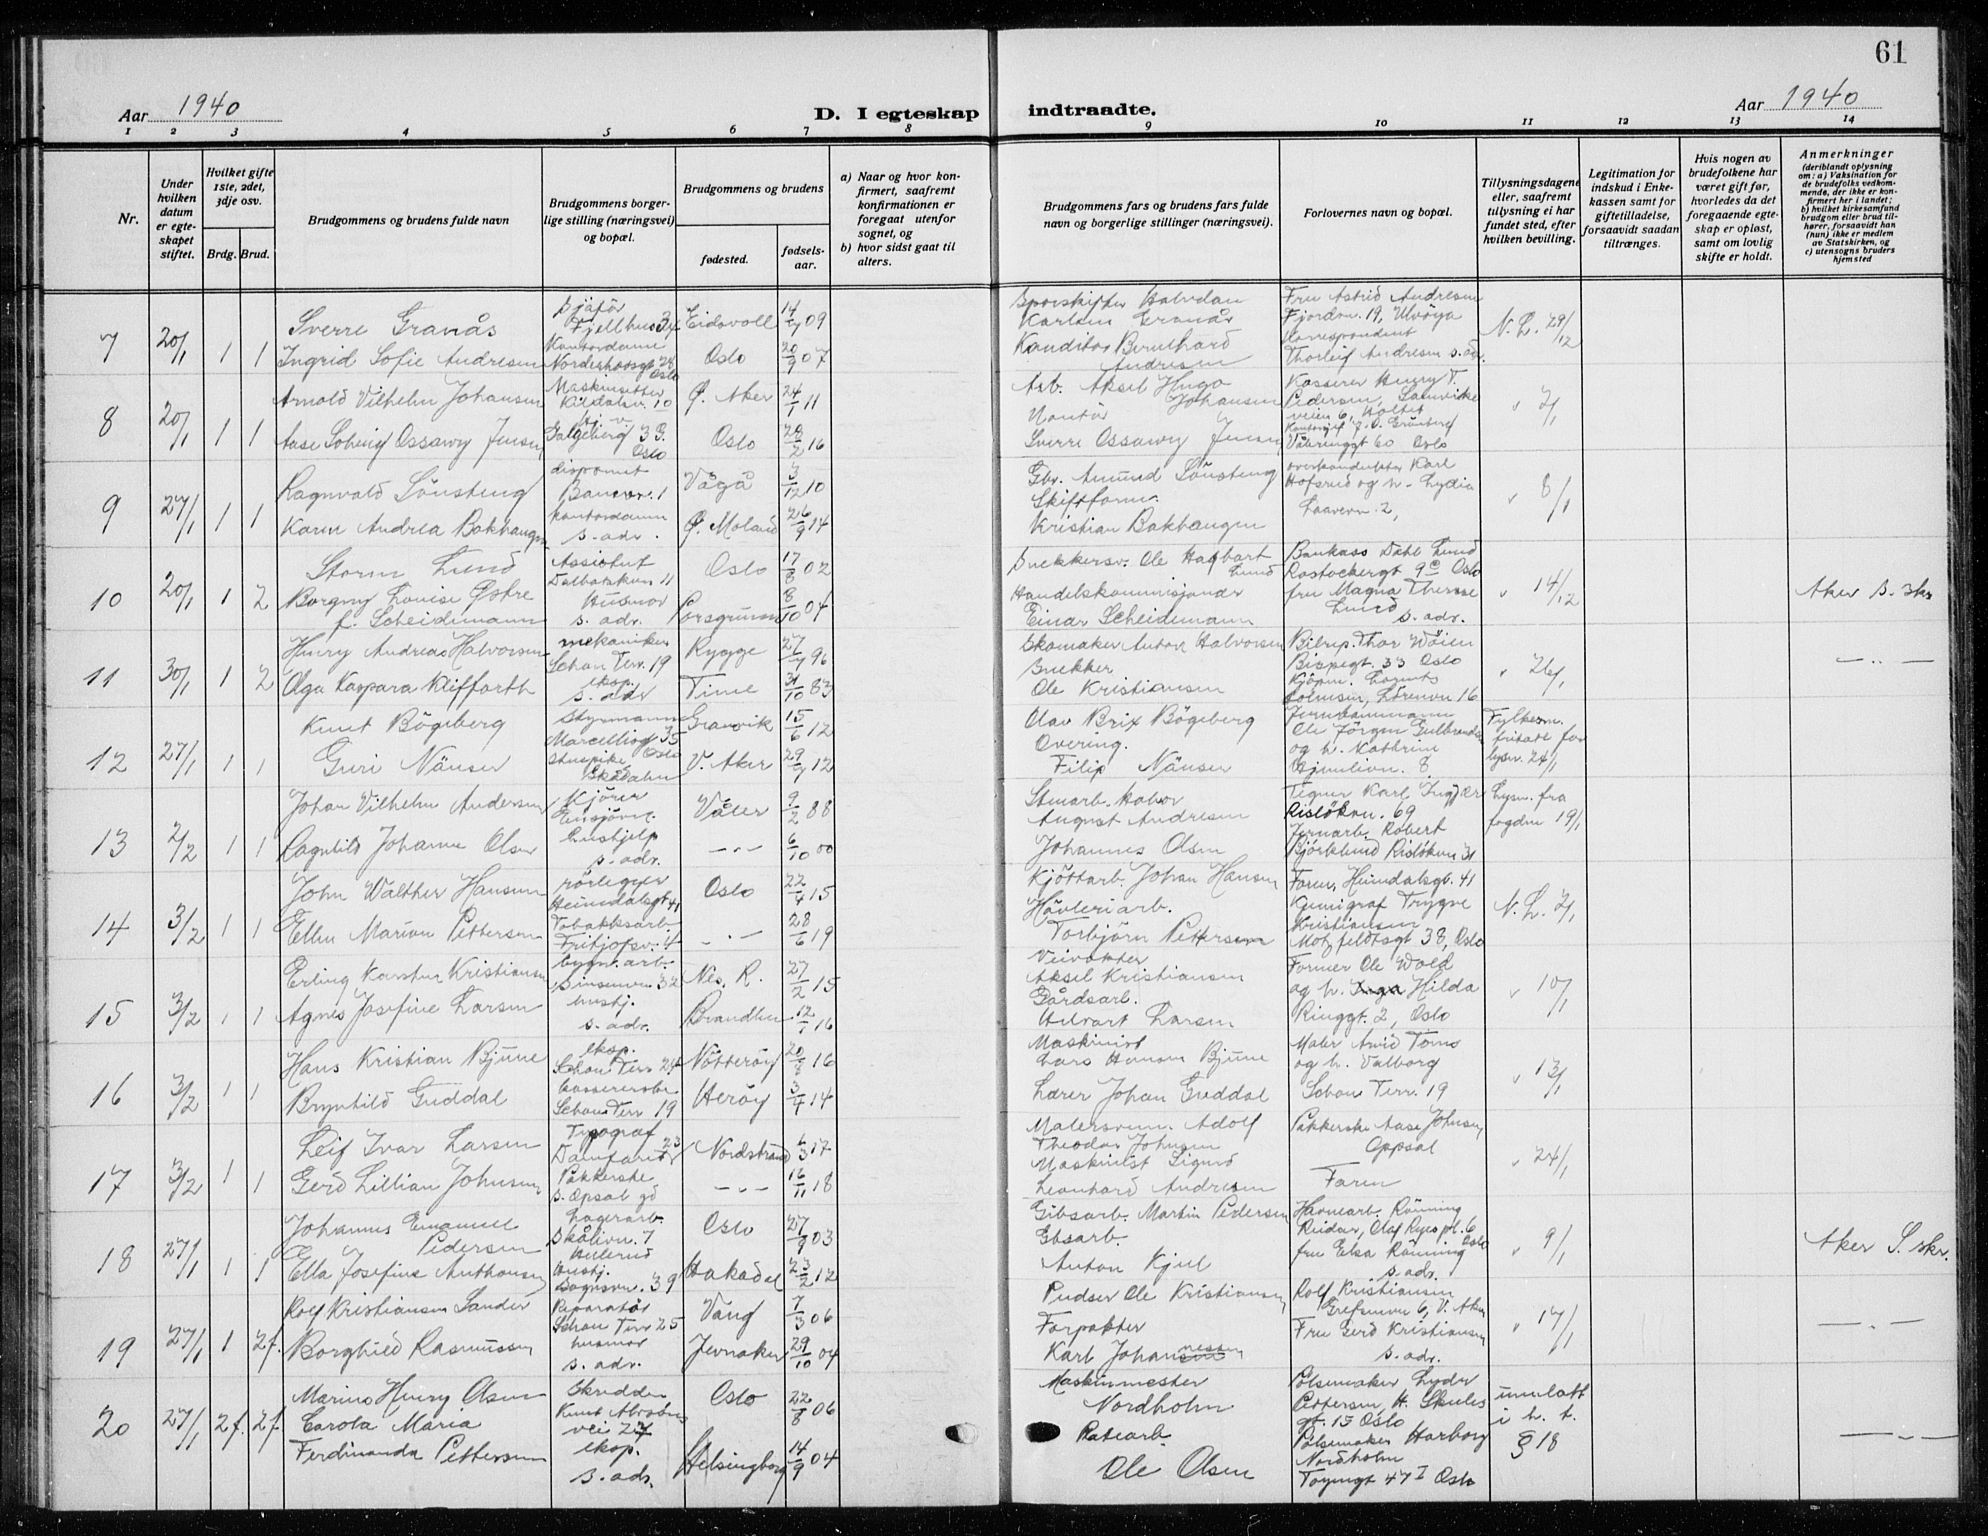 61
Aar 1940
D. I egteskap indtraadte.
Aar 1940
1 2 3 4 5 6 7 8 9 10 11 12 13 14
Nr.
Under hvilken datum er egteskapet stiftet.
Hvilket gifte 1ste, 2det, 3dje osv.
Brdg. Brud.
Brudgommens og brudens fulde navn
Brudgommens borgerlige stilling (næringsvei) og bopæl.
Brudgommens og brudens
fødested.
fødselsaar.
a) Naar og hvor konfirmert, saafremt konfirmationen er foregaat utenfor sognet, og
b) hvor sidst gaat til alters.
Brudgommens fars og brudens fars fulde navn og borgerlige stillinger (næringsvei).
Forlovernes navn og bopæl.
Tillysningsdagene eller, saafremt tillysning ei har fundet sted, efter hvilken bevilling.
Legitimation for indskud i Enkekassen samt for giftetilladelse, forsaavidt saadan tiltrænges.
Hvis nogen av brudefolkene har været gift før, hvorledes da det foregaaende egteskap er opløst, samt om lovlig skifte er holdt.
Anmerkninger
(deriblandt oplysning om: a) Vaksination for de brudefolks vedkommende, der ikke er konfirmert her i landet; b) hvilket kirkesamfund brudgom eller brud tilhører, forsaavidt han (hun) ikke er medlem av Statskirken, og c) utensogns bruders hjemsted
7 20/1 1 1
Sverre Granås
Ingrid Sofie Andresen
Sjåfør
Fjellhus 34
Kontordame
Oslo
Eidsvoll 14/7 09
Oslo 20/9 07
Sporskifter Halvdan
Karlsen Granås
Konditor Bernhard
Andresen
Fru Astrid Andresen
Fjordvn. 19, Ulvøya
Korrespondent
Thorleif Andresen s. adr.
N. L. 29/12
8 20/1 1 1
Arnold Vilhelm Johansen
Aase Solveig Ossawy Jensen
Galgeberg 3
Oslo
Ø. Aker 24/1 11
Oslo 29/2 16
Arb. Aksel Hugo
Johansen
Kontor
Sverre Ossawy Jensen
Kasserer Henry T.
Pedersen,
veien 6, Holtet
Vålerenggt 60 Oslo
" 7/1
9 27/1 1 1
Ragnvald Sönsteng
Karen Andrea Bakhaugen
disponent
kontordame
s. adr.
Vågå 3/12 10
Ø. Moland 26/9 14
Gbr. Amund Sönsteng
Skiftform.
Kristian Bakhaugen
overkonduktör Karl
Hofsrud og h. Lydia
2,
" 8/1
10 20/1 1 2
Storm Lund
Borgny Louise Østre
f. Scheidemann
Assistent
Dalbakkvn 11
Husmor
s. adr.
Oslo 17/8 02
Porsgrunn 8/10 04
Snekkersv. Ole Hagbart
Lund
Handelskommisjonær
Einar Scheidemann
Bankass Dahl Lund
Rostockergt 9c Oslo
fru Magna Therese
Lund
s. adr.
" 14/12
Aker S. skr.
11 30/1 1 2
Henry Andreas Halvorsen
Olga Kaspara Kliffarth
mekaniker
Schous Terr. 19
eksp.
s. adr
Rygge 27/7 96
Time 31/10 83
Skomaker Anton Halvorsen
Snekker
Ole Kristiansen
Bilrep. Thor Wøien
Bispegt. 33 Oslo
Kjøpm.
Lörenvn 16
" 26/1
— " —
12 27/1 1 1
Knut Bögeberg
Guri Nänser
Styrmann
Marcelliesgt 35
Oslo
Skådalen
Granvik 15/6 12
V. Aker 29/7 12
Olav Brix Bögeberg
Overing.
Filip Nänser
Jernbanemann
Ole Jörgen Gulbrandsen
og h. Kathrine
8
Fylkesm.
fritatt for
lysn. 24/1
13 2/2 1 1
Johan Vilhelm Andersen
Ragnhild Johanne Olsen
Kjörer
Ensjövn.
hushjelp
s. adr.
Våler 9/2 88
— " — 6/10 00
Stenarb. Halvor
August Andresen
Johannes Olsen
Tegner Karl
Risløkvn. 69
Jernarb. Robert
Björklund Risløkvn 31
Lysn. fra
fogden 19/1
14 3/2 1 1
John Walther Hansen
Ellen Marion Pettersen
rörlegger
Heimdalsgt 41
Tobakksarb.
Fritjofsv. 4
Oslo 22/4 15
— " — 28/6 19
Kjöttarb. Johan Hansen
Høvleriarb.
Torbjörn Pettersen
Faren, Heimdalsgt. 41
Trygve
Kristiansen
Motzfeldtsgt 38, Oslo
N. L. 7/1
15 3/2 1 1
Erling Karsten Kristiansen
Agnes Josefine Larsen
bygn. arb.
Sinsenvn. 32
hushj.
s. adr.
Nes, R. 27/2 15
Brandbu 12/1 16
Veivokter
Aksel Kristiansen
Gårdsarb.
Halvart Larsen
Former Ole Wold
og h. Hilda
Ringgt. 2, Oslo
" 10/1
16 3/2 1 1
Hans Kristian Bjune
Brynhild Guddal
eksp.
Schous Terr 24
kassererske
Schous Terr 19
Nötteröy 20/3 16
Heröy 3/4 14
Maskinist
Lars Hansen Bjune
Lærer Johan Guddal
Maler Arvid Toms
og h. Valborg
Schous Terr. 19
" 13/1
17 3/2 1 1
Leif Ivar Larsen
Gerd Lillian Johnsen
Typograf
Pakkerske
s. Opsal gd
Nordstrand 6/3 17
— " — 16/11 18
Malersvenn Adolf
Theodor Johnsen
Maskinist Sigurd
Leonhard Andresen
Pakkerske Aase Johnsen
Oppsal
Faren
" 24/1
18 27/1 1 1
Johannes Emanuel
Pedersen
Ella Josefine Anthonsen
Lagerarb.
Skålevn. 7
Hushj.
Sognsvn. 39
Oslo 27/9 03
Hakadal 23/2 12
Gibsarb. Martin Pedersen
Gbsarb.
Anton Kjul
Havnearb. Rönning
Reidar, Olaf Ryes pl. 6
Oslo
fru Elsa Rönning
s. adr.
" 9/1
Aker S. skr.
19 27/1 1 2f.
Rolf Kristiansen Sander
Borghild Rasmussen
Reparatör
Schous Terr 25
husmor
s. adr.
Vang 7/3 06
Jevnaker 29/10 04
Pudser Ole Kristiansen
Forpakter
Karl Johannessen
Rolf Kristiansen
Grefsenvn 6, V. Aker
Fru Gerd Kristiansen
s. adr.
" 17/1
— " —
20 27/1 2f. 2f.
Marius Henry Olsen
Carola Maria
Ferdinanda Pettersen
Skredder
vei 27
eksp.
s. adr.
Oslo 22/8 06
Helsingborg 14/9 04
Maskinmester
Nordholm
Ole Olsen
Pölsemaker Lyder
Pettersen, H. Skules
gt. 15 Oslo
Pölsemaker Harborg
Nordholm
Töyengt 47 I Oslo
unnlatt
i h. t.
§ 18
— " —